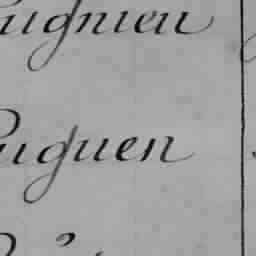 uignieu
uguen